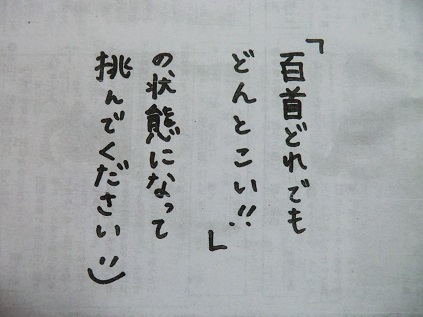 「百首どれでも
どんとこい!!」
の状態になって
挑んでください!!